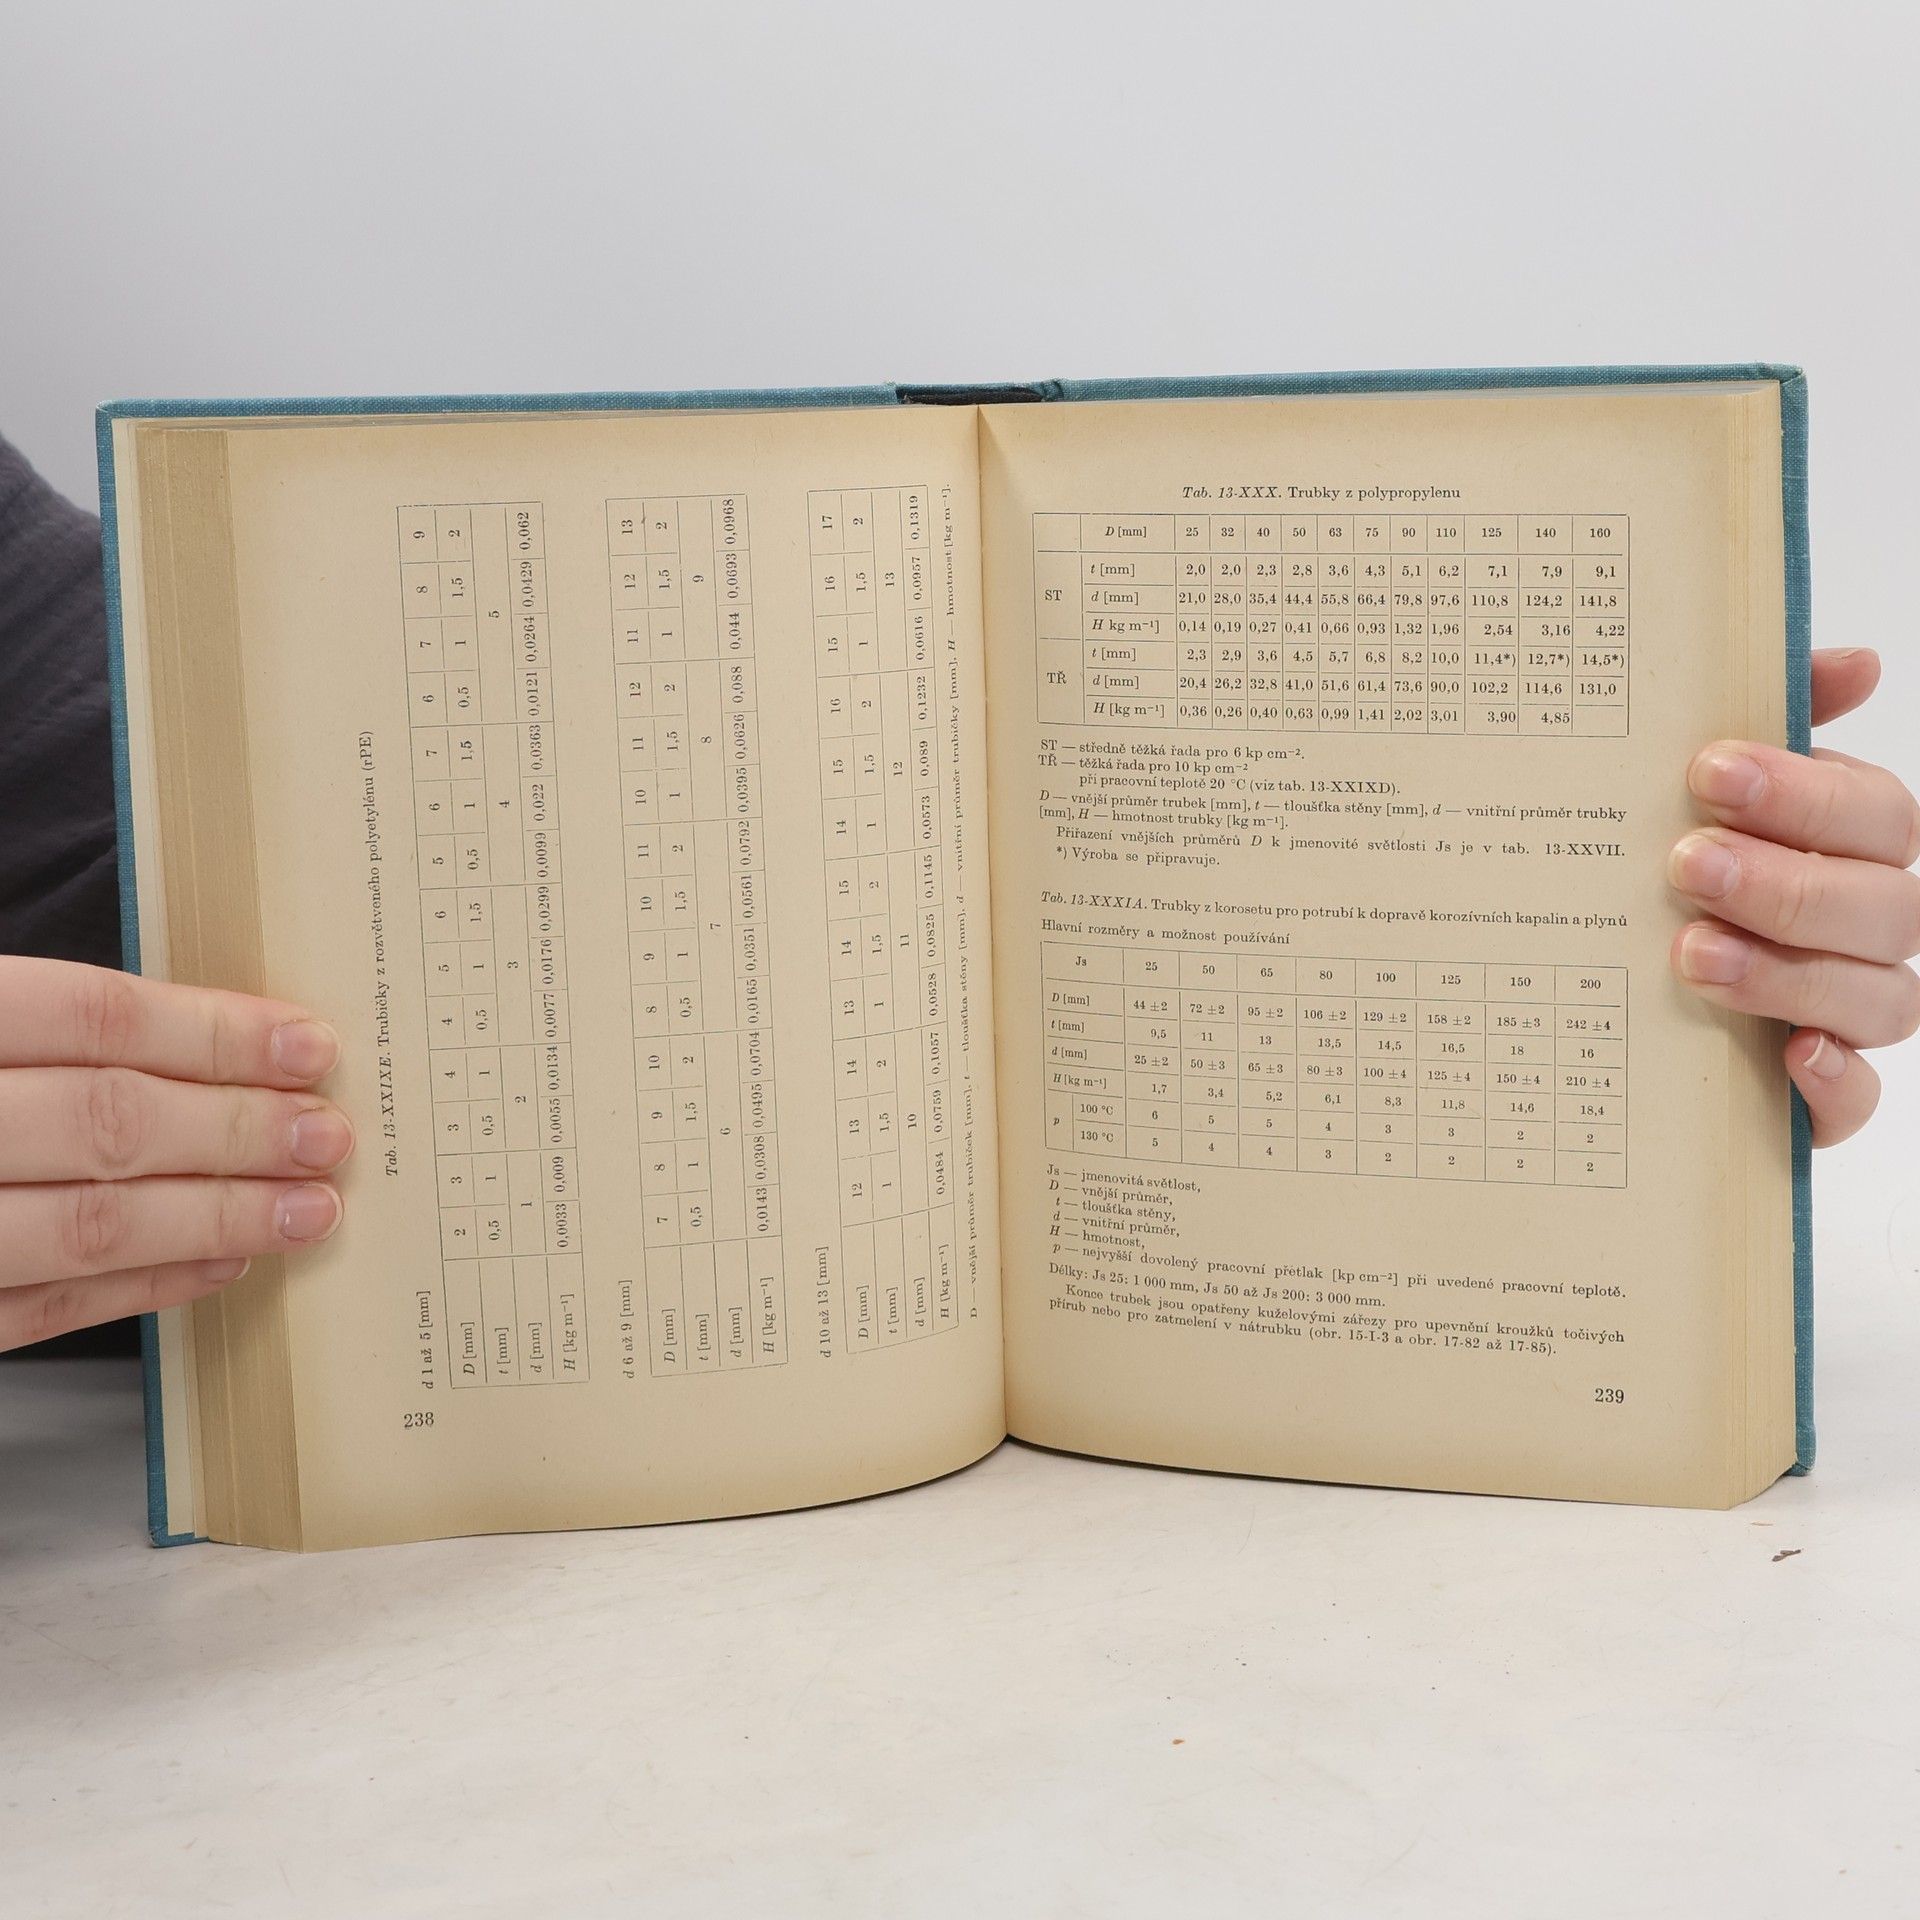 Tab. 13-XXIXE. Trubičky z rozvětveného polyetylénu (rPE)
d 1 až 5 [mm]
D [mm] 2 3 3 4 4 5 6 5 6 7 6 7 8 9
t [mm] 0,5 1 0,5 1 0,5 1 1,5 0,5 1 1,5 0,5 1 1,5 2
d [mm] 1 2 3 4 5
H [kg m⁻¹] 0,0033 0,009 0,0055 0,0134 0,0077 0,0176 0,0299 0,0099 0,022 0,0363 0,0121 0,0264 0,0429 0,062
d 6 až 9 [mm]
D [mm] 7 8 9 10 8 9 10 11 10 11 12 11 12 13
t [mm] 0,5 1 1,5 2 0,5 1 1,5 2 1 1,5 2 1 1,5 2
d [mm] 6 7 8 9
H [kg m⁻¹] 0,0143 0,0308 0,0495 0,0704 0,0165 0,0351 0,0561 0,0792 0,0395 0,0626 0,088 0,044 0,0693 0,0968
d 10 až 13 [mm]
D [mm] 12 13 14 13 14 15 14 15 16 15 16 17
t [mm] 1 1,5 2 1 1,5 2 1 1,5 2 1 1,5 2
d [mm] 10 11 12 13
H [kg m⁻¹] 0,0484 0,0759 0,1057 0,0528 0,0825 0,1145 0,0573 0,089 0,1232 0,0616 0,0957 0,1319
D — vnější průměr trubiček [mm], t — tloušťka stěny [mm], d — vnitřní průměr trubičky [mm], H — hmotnost [kg m⁻¹].
238
Tab. 13-XXX. Trubky z polypropylenu
D [mm] 25 32 40 50 63 75 90 110 125 140 160
ST
t [mm] 2,0 2,0 2,3 2,8 3,6 4,3 5,1 6,2 7,1 7,9 9,1
d [mm] 21,0 28,0 35,4 44,4 55,8 66,4 79,8 97,6 110,8 124,2 141,8
H kg m⁻¹] 0,14 0,19 0,27 0,41 0,66 0,93 1,32 1,96 2,54 3,16 4,22
TŘ
t [mm] 2,3 2,9 3,6 4,5 5,7 6,8 8,2 10,0 11,4*) 12,7*) 14,5*)
d [mm] 20,4 26,2 32,8 41,0 51,6 61,4 73,6 90,0 102,2 114,6 131,0
H [kg m⁻¹] 0,36 0,26 0,40 0,63 0,99 1,41 2,02 3,01 3,90 4,85
ST — středně těžká řada pro 6 kp cm⁻².
TŘ — těžká řada pro 10 kp cm⁻²
při pracovní teplotě 20 °C (viz tab. 13-XXIXD).
D — vnější průměr trubek [mm], t — tloušťka stěny [mm], d — vnitřní průměr trubky
[mm], H — hmotnost trubky [kg m⁻¹].
Přiřazení vnějších průměrů D k jmenovité světlosti Js je v tab. 13-XXVII.
*) Výroba se připravuje.
Tab. 13-XXXIA. Trubky z korosetu pro potrubí k dopravě korozívních kapalin a plynů
Hlavní rozměry a možnost používání
Js 25 50 65 80 100 125 150 200
D [mm] 44 ±2 72 ±2 95 ±2 106 ±2 129 ±2 158 ±2 185 ±3 242 ±4
t [mm] 9,5 11 13 13,5 14,5 16,5 18 16
d [mm] 25 ±2 50 ±3 65 ±3 80 ±3 100 ±4 125 ±4 150 ±4 210 ±4
H [kg m⁻¹] 1,7 3,4 5,2 6,1 8,3 11,8 14,6 18,4
p
100 °C 6 5 5 4 3 3 2 2
130 °C 5 4 4 3 2 2 2 2
Js — jmenovitá světlost,
D — vnější průměr,
t — tloušťka stěny,
d — vnitřní průměr,
H — hmotnost,
p — nejvyšší dovolený pracovní přetlak [kp cm⁻²] při uvedené pracovní teplotě.
Délky: Js 25: 1 000 mm, Js 50 až Js 200: 3 000 mm.
Konce trubek jsou opatřeny kuželovými zářezy pro upevnění kroužků točivých
přírub nebo pro zatmelení v nátrubku (obr. 15-I-3 a obr. 17-82 až 17-85).
239